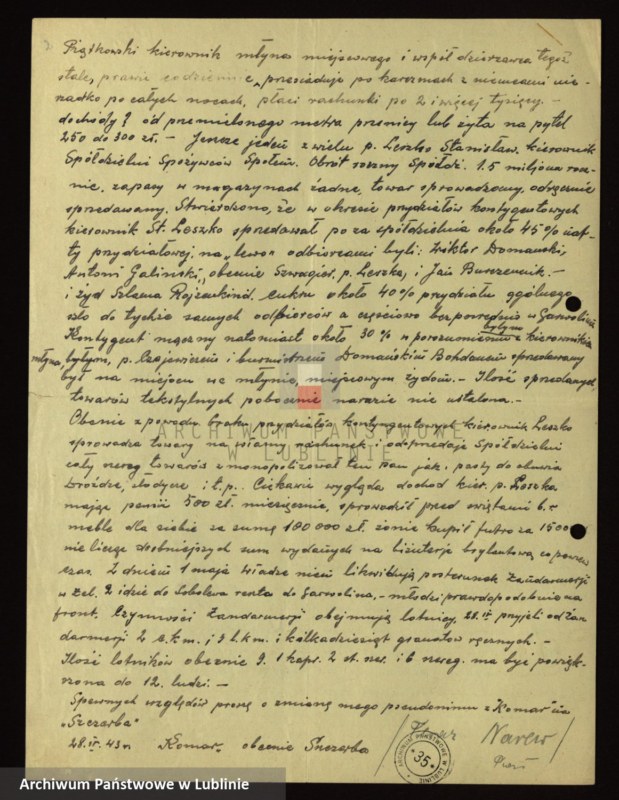 Piątkowski kierownik młyna miejscowego i współ dzierżawca tegoż
stale, prawie codziennie, przesiaduje po karczmach z niemcami nie-
rzadko po całych nocach, płaci rachunki po 2 i więcej tysięcy. —
dochody? od przemielonego metra pszenicy lub żyta na pytel
250 do 300 zł. — Jeszcze jeden z wielu p. Leszko Stanisław, kierownik
Spółdzielni Spożywców Społem. Obrót roczny Spółdz. 1.5 miljona rocz-
nie, zapasy w magazynach żadne, towar sprowadzany, odręcznie
sprzedawany. Stwierdzono, że w okresie przydziałów kontygentowych
kierownik St. Leszko sprzedawał po za spółdzielnią około 45% naf-
ty przydziałowej na „lewo” odbiorcami byli: Wiktor Domański,
Antoni Galiński, obecnie Szwagier p. Leszka, i Jan —
i żyd Szlama cukru około 40% przydziału ogólnego
szło do tychże samych odbiorców a częściowo bezpośrednio w Garwolinie
Kontygent mączny natomiast około 30% w porozumieniu z byłym kierownikiem
młyna, byłym, p. i burmistrzem Domańskim Bohdanem sprzedawany
był na miejscu we młynie, miejscowym żydom. — Ilość sprzedanych
towarów tekstylnych pobocznie narazie nie ustalona. —
ARCHIWUM PAŃSTWOWE
W LUBLINIE
Obecnie z powodu braku przydziałów kontyngentowych kierownik Leszko
sprowadza towary na własny rachunek i odprzedaje Spółdzielni
cały szereg towarów zmonopolizował ten pan jak: pasty do obuwia
Drożdże, słodycze i t.p. Ciekawie wygląda dochód kier. p. Leszka
mając pensji 500 zł. miesięcznie, sprowadził przed świętami b.r.
meble dla siebie za sumę 180 000 zł. żonie kupił futro za 15000
nie licząc drobniejszych sum wydanych na biżuterję brylantową co pewien
czas. Z dniem 1 maja władze niem. likwidują posterunek Żandarmerji
w Żel. 2 idzie do Sobolewa reszta do Garwolina, — młodzi prawdopodobnie na
front. Czynności Żandarmerji obejmują lotnicy, 28.IV przyjęli od żan
darmerji 2 c.k.m. i 3 l.k.m. i kilkadziesiąt granatów ręcznych. —
Ilość lotników obecnie 9. 1 kapr. 2 st. szer. i 6 szereg. ma być powięk-
szona do 12. ludzi. —
Spewnych względów proszę o zmianę mego pseudonimu z „Komar” na
„Szczerba”
28.IV.43 r. Komar, obecnie Szczerba
Narew
ARCHIWUM PAŃSTWOWE W LUBLINIE
35
Archiwum Państwowe w Lublinie